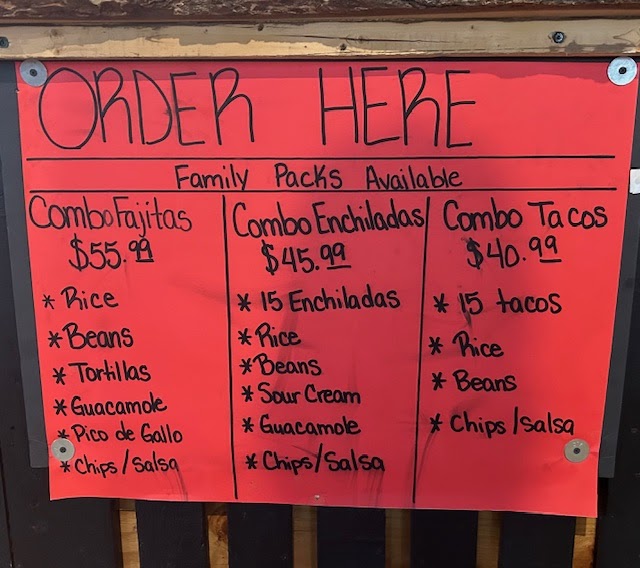 ORDER HERE
Family Packs Available
Combo Fajitas
$55.99
* Rice
* Beans
* Tortillas
* Guacamole
* Pico de Gallo
* Chips/Salsa
Combo Enchiladas
$45.99
* 15 Enchiladas
* Rice
* Beans
* Sour Cream
* Guacamole
* Chips/Salsa
Combo Tacos
$40.99
* 15 tacos
* Rice
* Beans
* Chips/Salsa